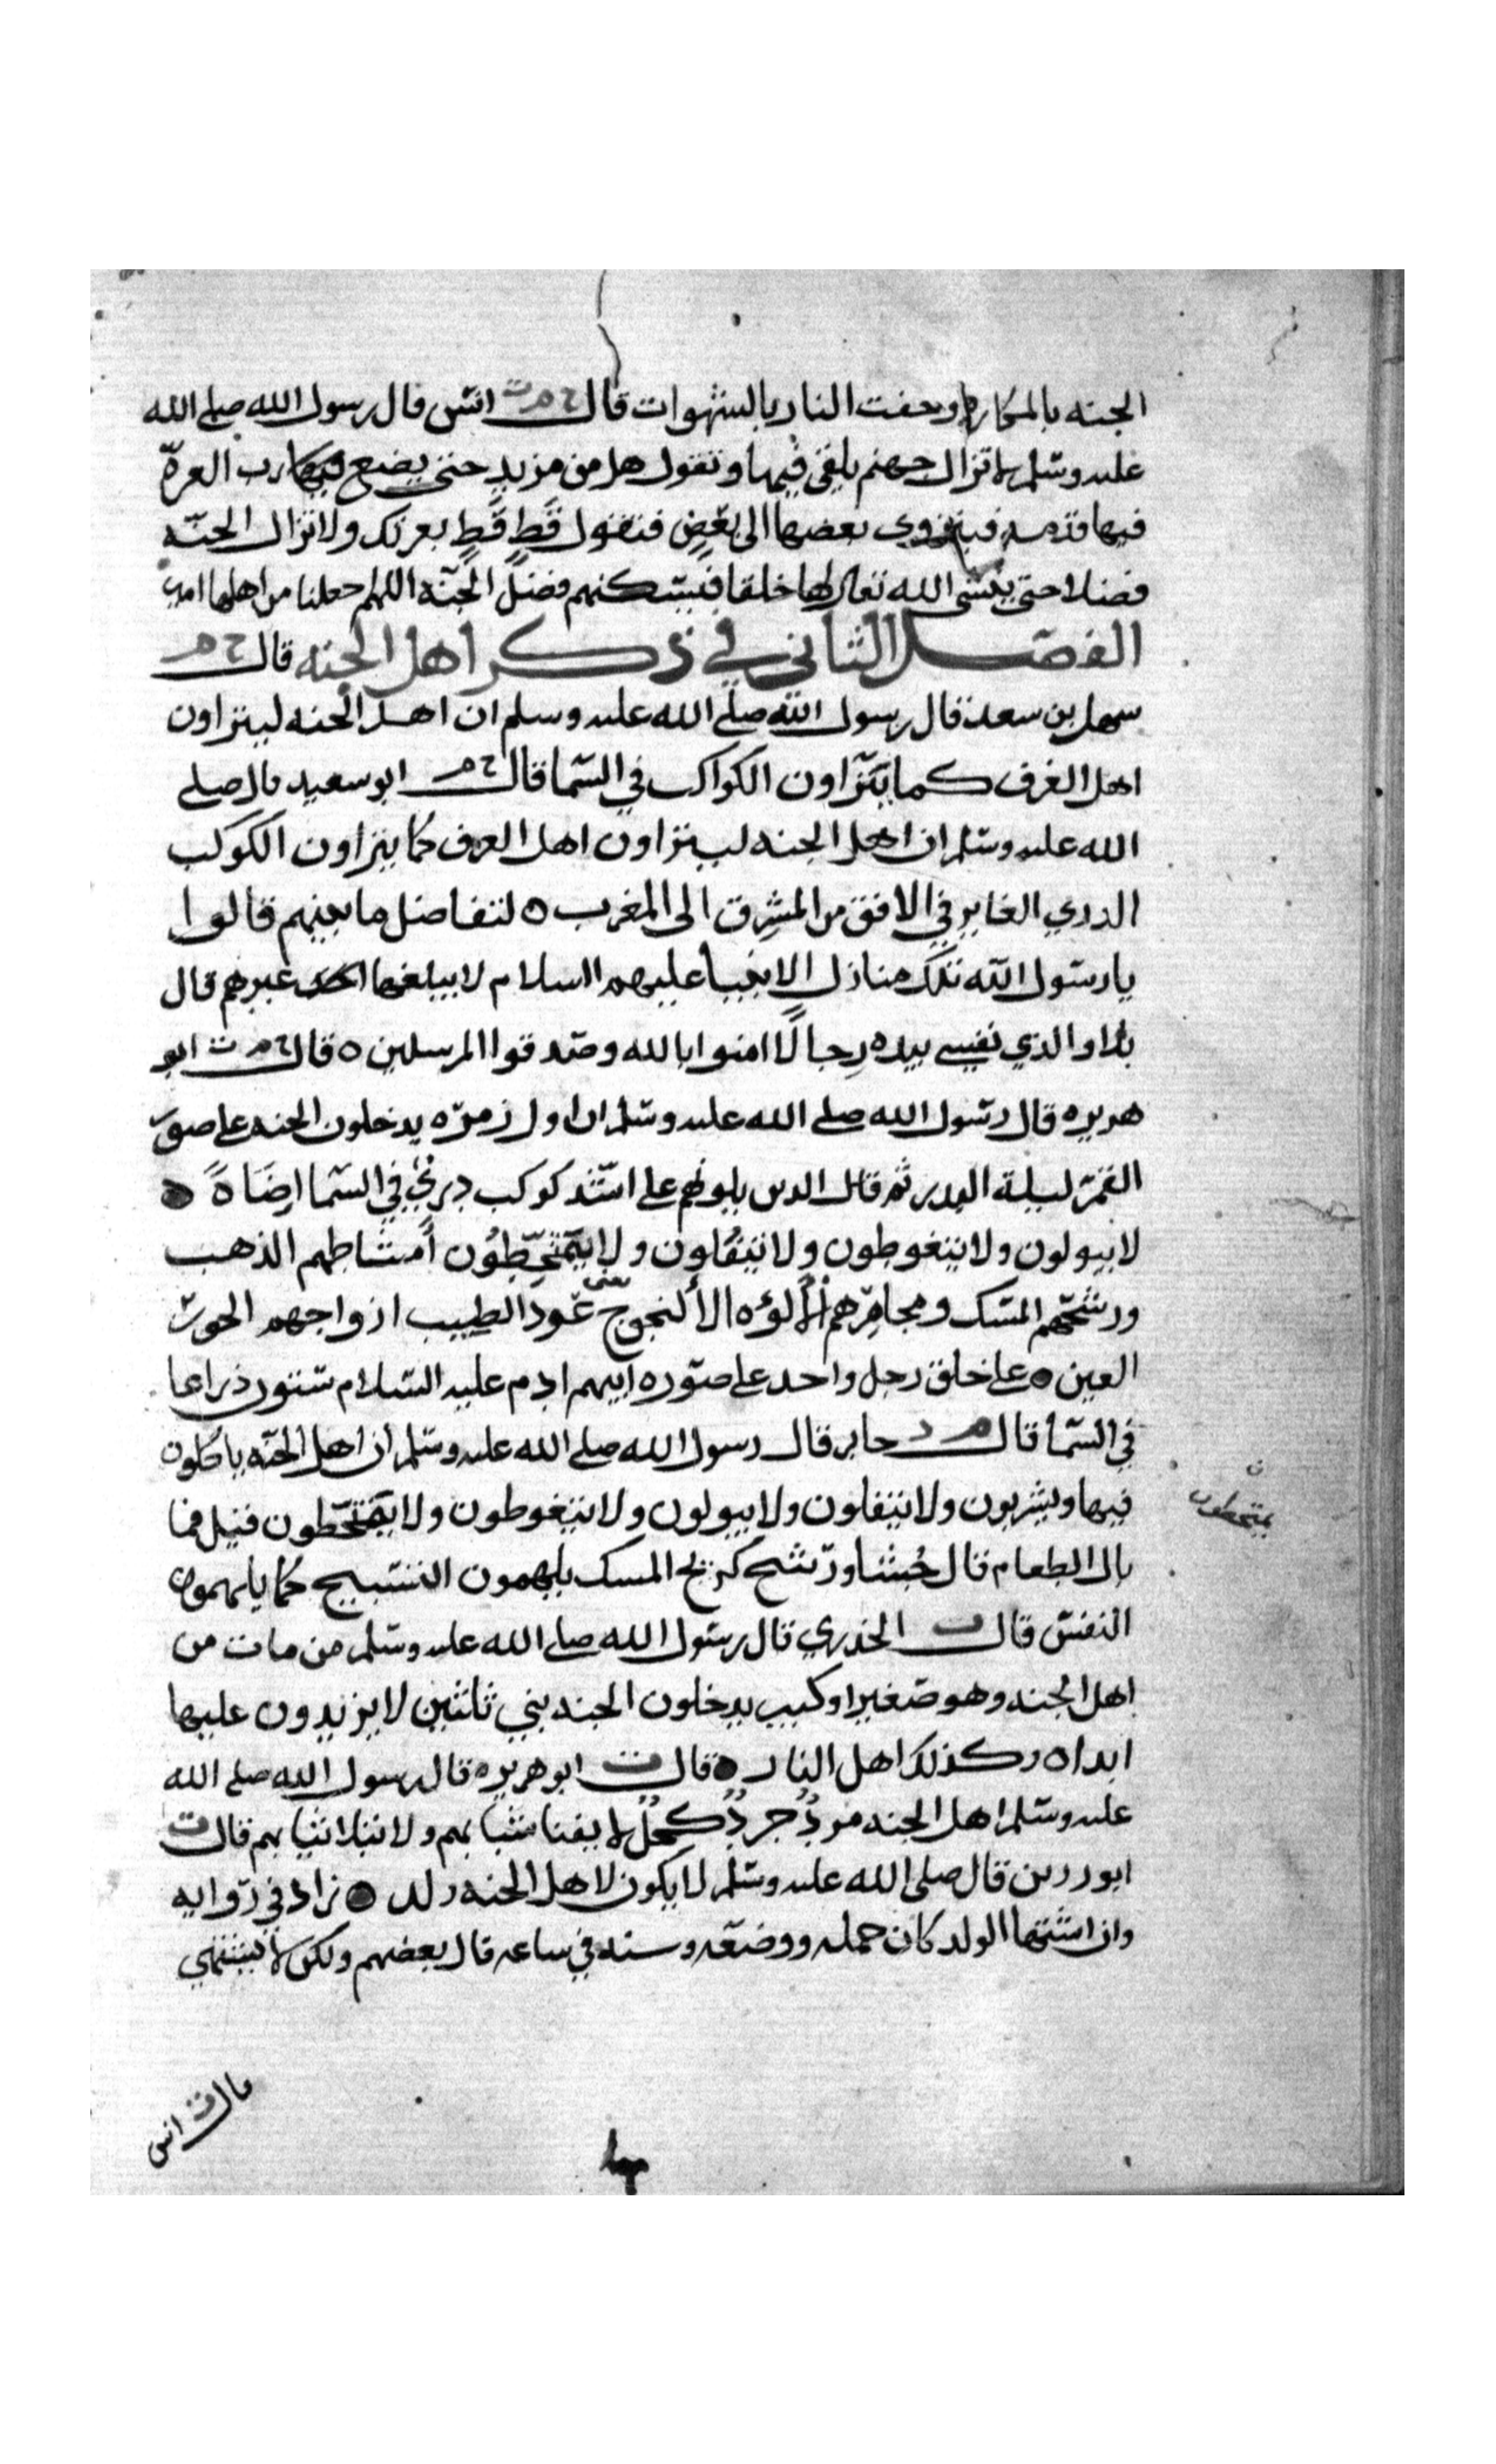 الجنه بالمكاره وحفت النار بالشهوات قال خ م ت انس قال رسول الله صلى الله
عليه وسلم لا تزال جهنم يلقى فيها وتقول هل من مزيد حتى يضع فيها رب العزة
فيها قدمه فينزوي بعضها الى بعض فتقول قط قط بعزتك ولا تزال الجنه
فضلا حتى ينشي الله تعالى لها خلقا فيسكنهم فضل الجنه اللهم اجعلنا من اهلها امين
الفصل الثاني في ذكر اهل الجنه قال خ م
سهل بن سعد قال رسول الله صلى الله عليه وسلم ان اهل الجنه ليتراون
اهل الغرف كما يتراون الكواكب في السما قال خ م ابو سعيد قال صلى
الله عليه وسلم ان اهل الجنه ليتراون اهل الغرف كما يتراون الكوكب
الدري الغابر في الافق من المشرق الى المغرب ه لتفاضل ما بينهم قالوا
يا رسول الله تلك منازل الانبيا عليهم السلام لا يبلغها احد غيرهم قال
بلا والذي نفسي بيده رجالا امنوا بالله وصدقوا المرسلين ه قال خ م ت ابو
هريره قال رسول الله صلى الله عليه وسلم ان اول زمره يدخلون الجنه على صورة
القمر ليلة البدر ثم قال الذين يلونهم على اشد كوكب دري في السما اضاة ه
لا يبولون ولا يتغوطون ولا يتفلون ولا يتمخطون امشاطهم الذهب
ورشحهم المسك ومجامرهم الالوه الالنجوج يعني عود الطيب ازواجهم الحور
العين ه على خلق رجل واحد على صوره ابيهم ادم عليه السلام ستون ذراعا
في السما قال م د جابر قال رسول الله صلى الله عليه وسلم ان اهل الجنه ياكلون
فيها ويشربون ولا يتفلون ولا يبولون ولا يتغوطون ولا يتمخطون قيل فما
ن
يمتخطون
بال الطعام قال جشا ورشح كريح المسك يلهمون التسبيح كما يلهمون
النفس قال ت الخدري قال رسول الله صلى الله عليه وسلم من مات من
اهل الجنه وهو صغير او كبير يدخلون الجنه بني ثلثين لا يزيدون عليها
ابدا ه وكذلك اهل النار ه قال ت ابو هريره قال رسول الله صلى الله
عليه وسلم اهل الجنه مرد جرد كحل لا يفنا شبابهم ولا تبلا ثيابهم قال ت
ابو رزين قال صلى الله عليه وسلم لا يكون لاهل الجنه ولد ه زاد في روايه
وان اشتها الولد كان حمله ووضعه وسنه في ساعه قال بعضهم ولكن لا يشتهي
قال ت انس